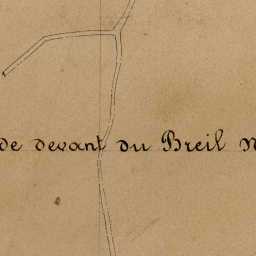 de devant du Breil N